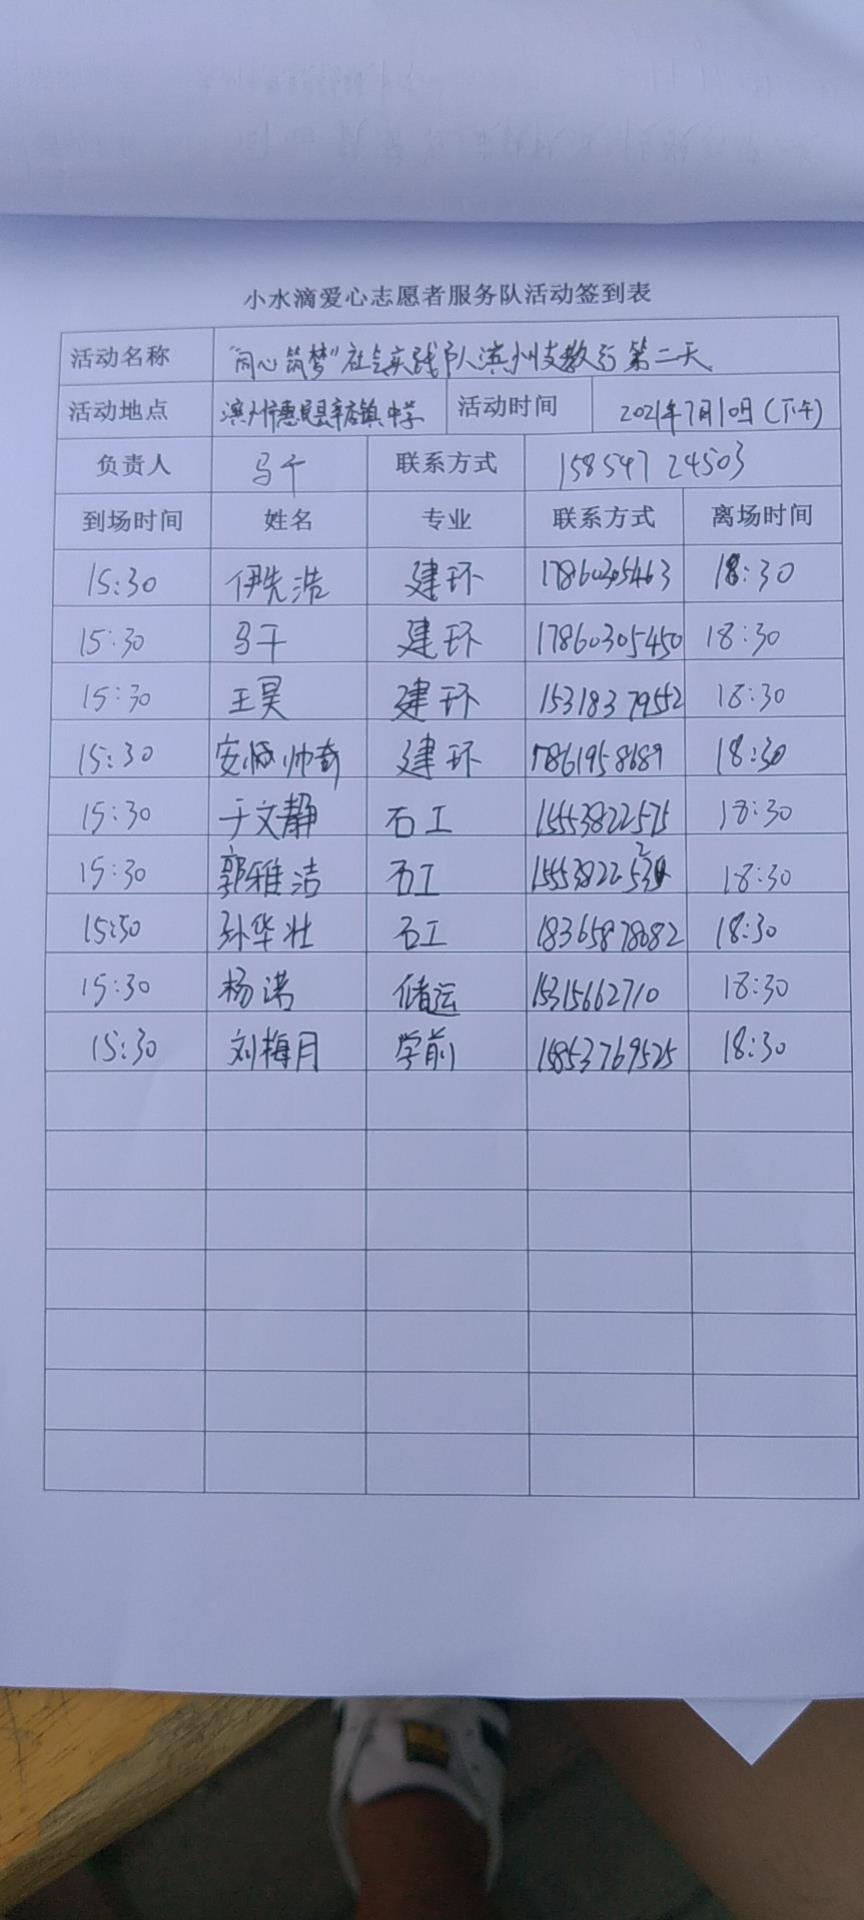 小水滴爱心志愿者服务队活动签到表
活动名称 "同心筑梦"社会实践队滨州支教行第二天
活动地点 滨州市惠民县辛店镇中学 活动时间 2021年7月10日(下午)
负责人 马千 联系方式 15854724503
到场时间 姓名 专业 联系方式 离场时间
15:30 伊先浩 建环 17860305463 18:30
15:30 马千 建环 17860305450 18:30
15:30 王昊 建环 15318379552 18:30
15:30 安 帅奇 建环 17861958689 18:30
15:30 于文静 石工 15553822575 18:30
15:30 郭雅洁 石工 18:30
15:30 孙华壮 石工 18365878682 18:30
15:30 杨诺 储运 15315662710 18:30
15:30 刘梅月 学前 15853769525 18:30